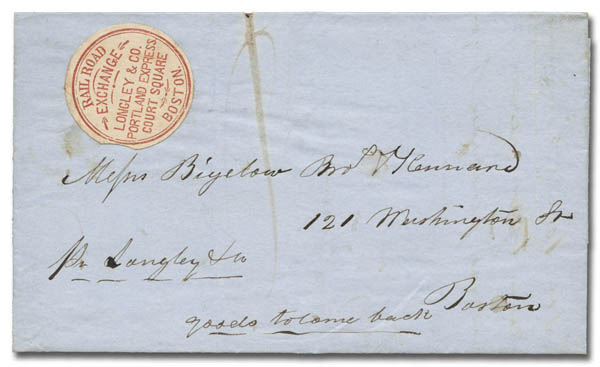 RAIL ROAD
EXCHANGE
LONGLEY & CO.
PORTLAND EXPRESS
COURT SQUARE
BOSTON.
Messrs Bigelow Bros & Kennard
121 Washington St
Pr Longley & Co
Boston
goods to come back